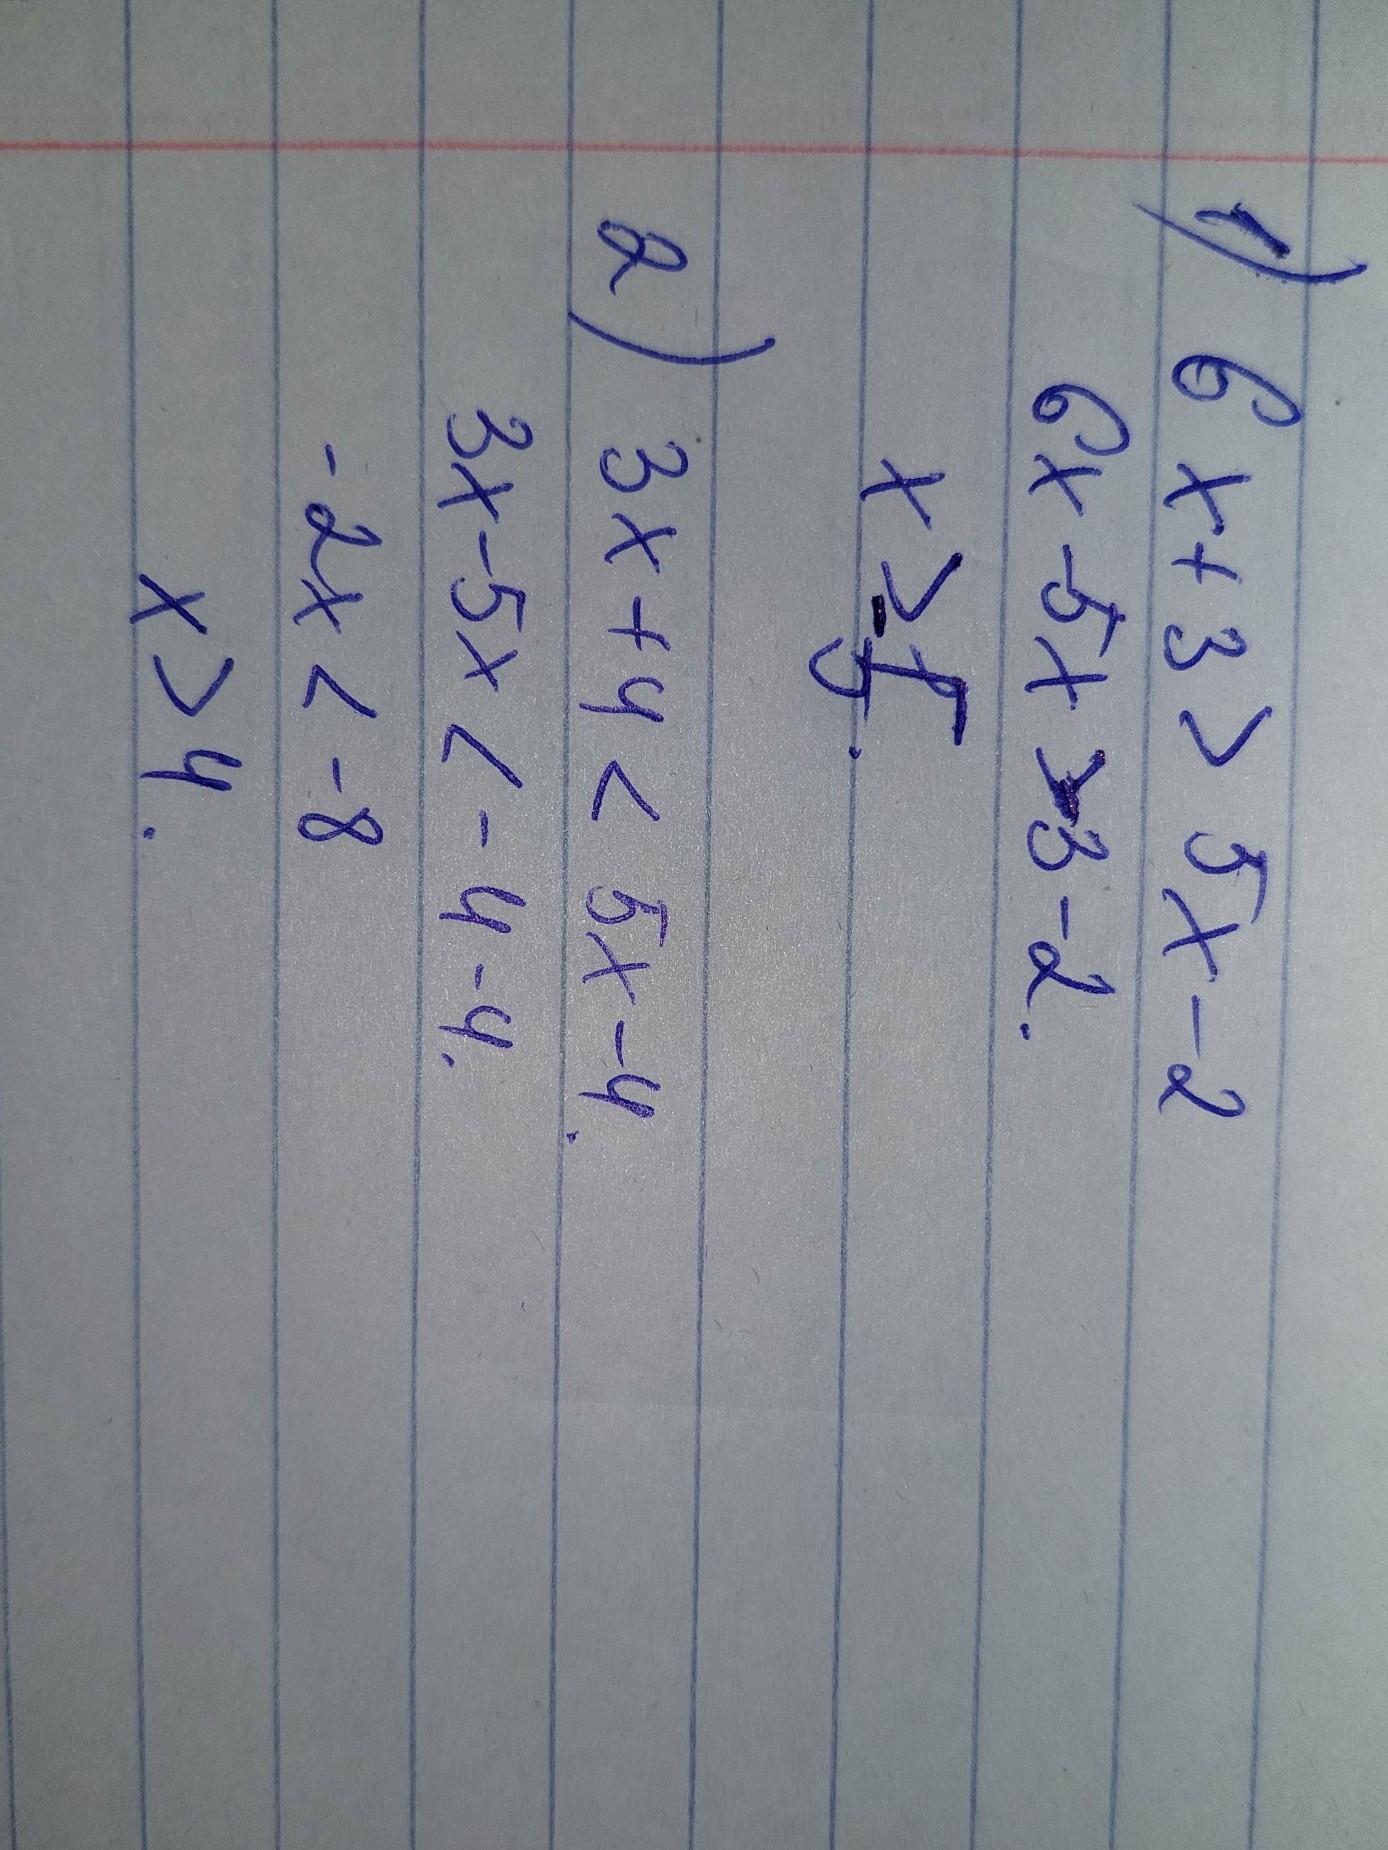 1) 6x+3>5x-2
6x-5x>-3-2.
x>-5.
2) 3x+4<5x-4.
3x-5x<-4-4.
-2x<-8
x>4.